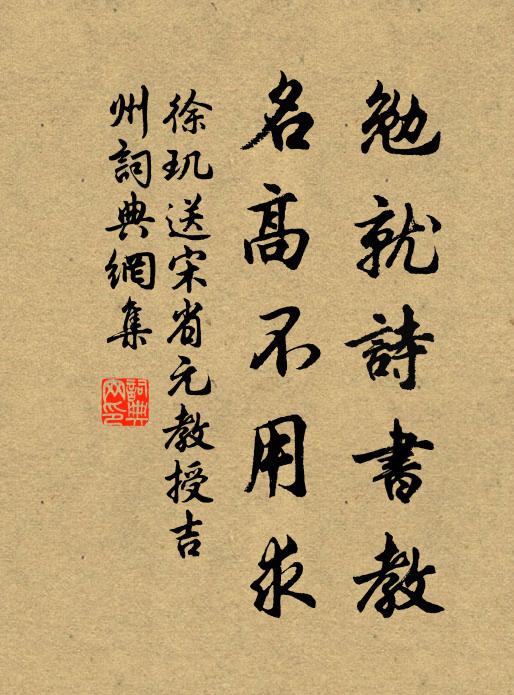 勉就詩書教
名高不用求
徐玑送宋省元教授吉
州詞典網集
詞典